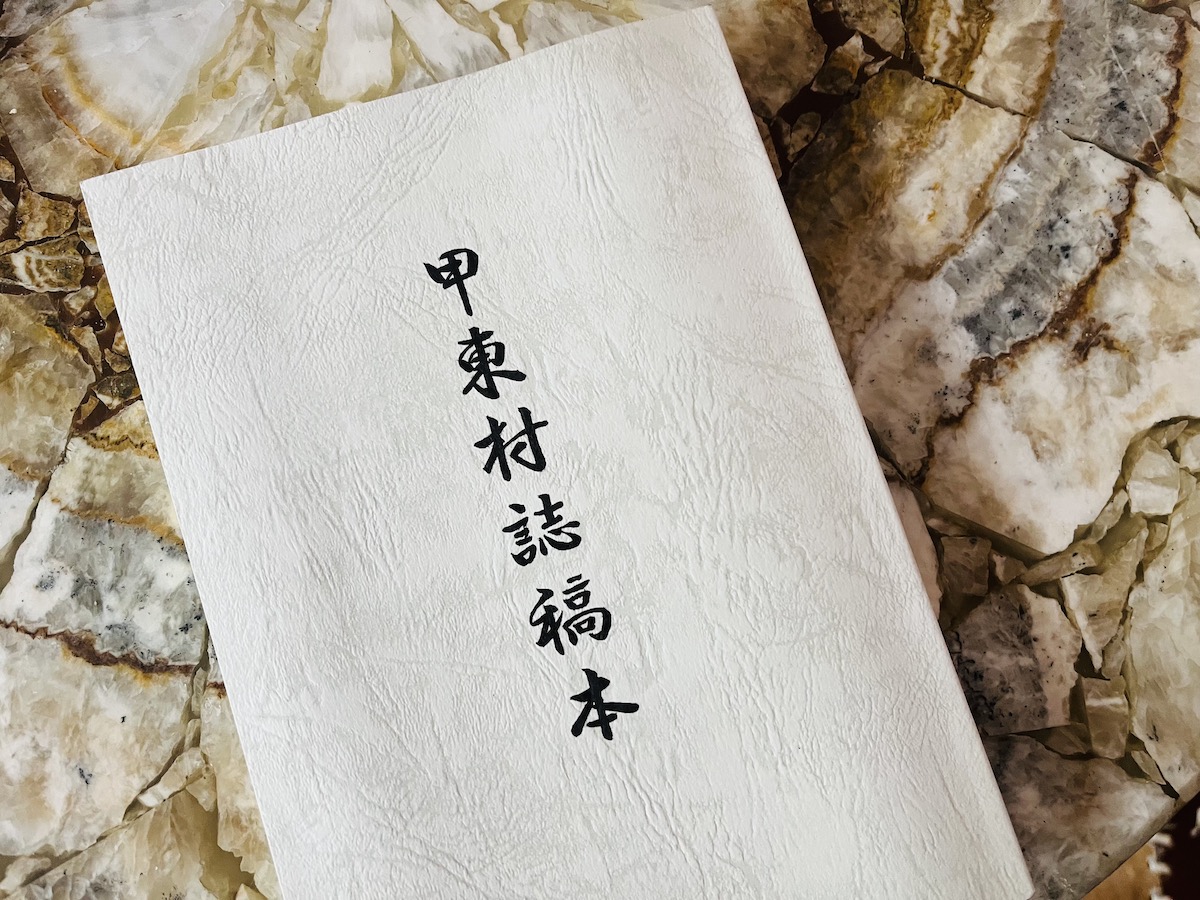 甲東村誌稿本